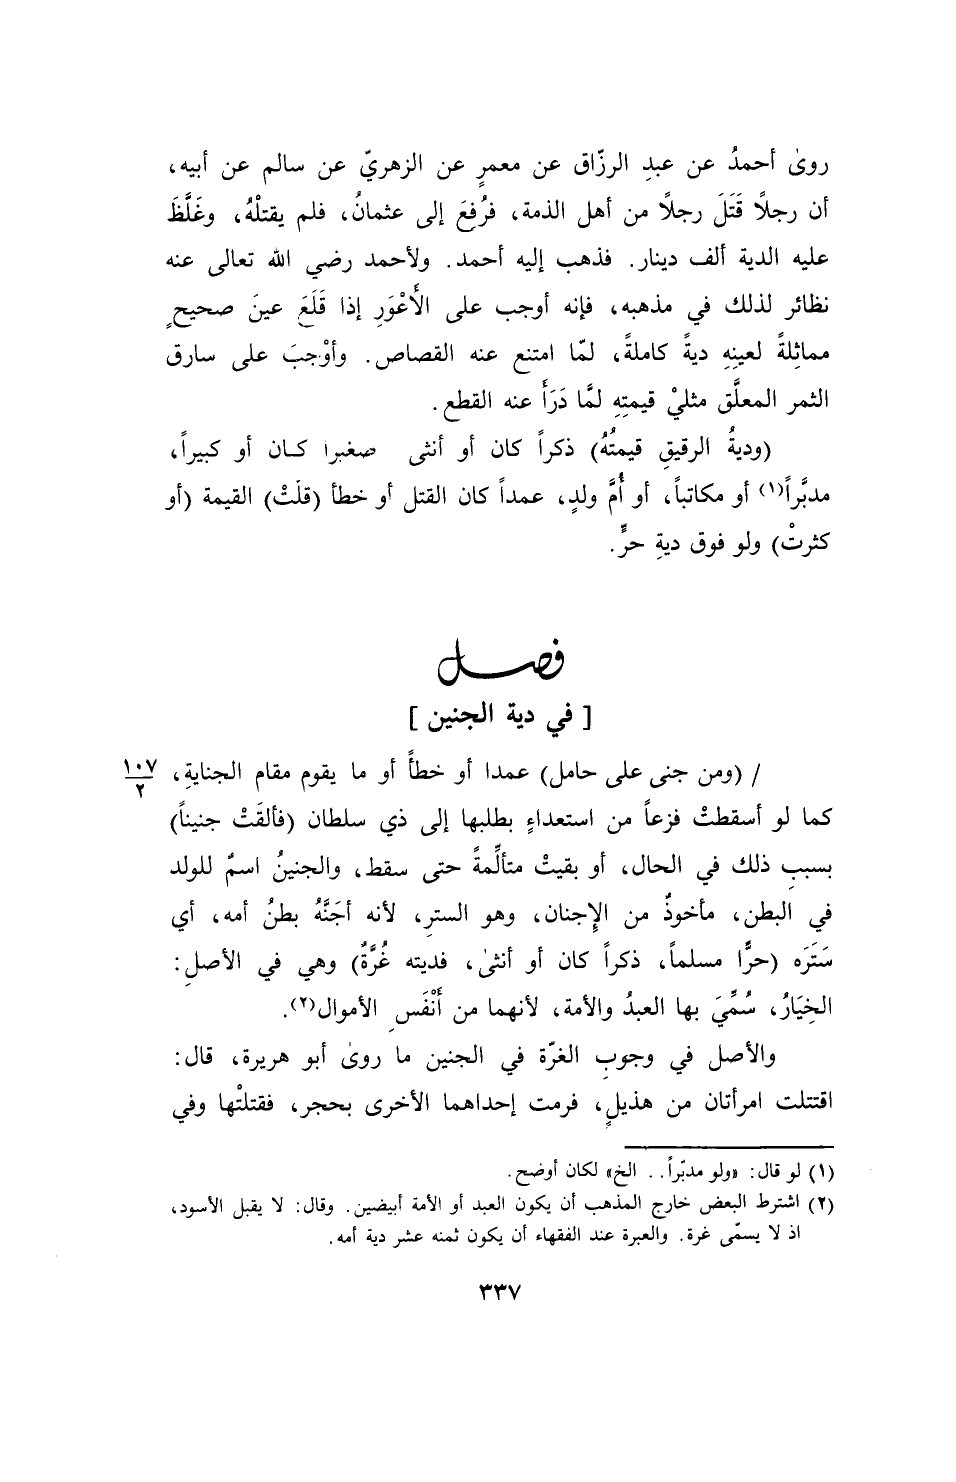 روىٰ أحمدُ عن عبدِ الرزّاق عن معمرٍ عن الزهريّ عن سالم عن أبيه،
أن رجلًا قَتَلَ رجلًا من أهل الذمة، فرُفِعَ إلى عثمانُ، فلم يقتلْهُ، وغَلَّظَ
عليه الدية ألف دينار. فذهب إليه أحمد. ولأحمد رضي الله تعالى عنه
نظائر لذلك في مذهبه، فإنه أوجب على الأَعْوَرِ إذا قَلَعَ عينَ صحيحٍ
مماثِلةً لعينِهِ ديةً كاملةً، لمّا امتنع عنه القصاص. وأوْجبَ على سارق
الثمر المعلَّق مثليْ قيمتِهِ لمَّا دَرَأَ عنه القطع.
(وديةُ الرقيقِ قيمتُهُ) ذكراً كان أو أنثى صغيرا كان أو كبيراً،
مدبَّراً(١) أو مكاتباً، أو أُمَّ ولدٍ، عمداً كان القتل أو خطأ (قلّتْ) القيمة (أو
كثرتْ) ولو فوق ديةِ حرٍّ.
فصل
[ في دية الجنين ]
/ (ومن جنى على حامل) عمدا أو خطأً أو ما يقوم مقام الجنايةِ، ١٠٧/٢
كما لو أسقطتْ فزعاً من استعداءٍ بطلبها إلى ذي سلطان (فألقَتْ جنيناً)
بسببِ ذلك في الحال، أو بقيتْ متألِّمةً حتى سقط، والجنينُ اسمٌ للولد
في البطن، مأخوذٌ من الإِجنان، وهو الستر، لأنه أجَنَّهُ بطنُ أمه، أي
سَتَرَه (حرًّا مسلماً، ذكراً كان أو أنثىٰ، فديته غُرَّةٌ) وهي في الأصلِ:
الخِيَارُ، سُمِّيَ بها العبدُ والأمة، لأنهما من أَنْفَسِ الأموال(٢).
والأصل في وجوبِ الغرّة في الجنين ما روىٰ أبو هريرة، قال:
اقتتلت امرأتان من هذيلٍ، فرمت إحداهما الأخرى بحجر، فقتلتْها وفي
(١) لو قال: «ولو مدبّراً.. الخ» لكان أوضح.
(٢) اشترط البعض خارج المذهب أن يكون العبد أو الأمة أبيضين. وقال: لا يقبل الأسود،
اذ لا يسمّى غرة. والعبرة عند الفقهاء أن يكون ثمنه عشر دية أمه.
٣٣٧